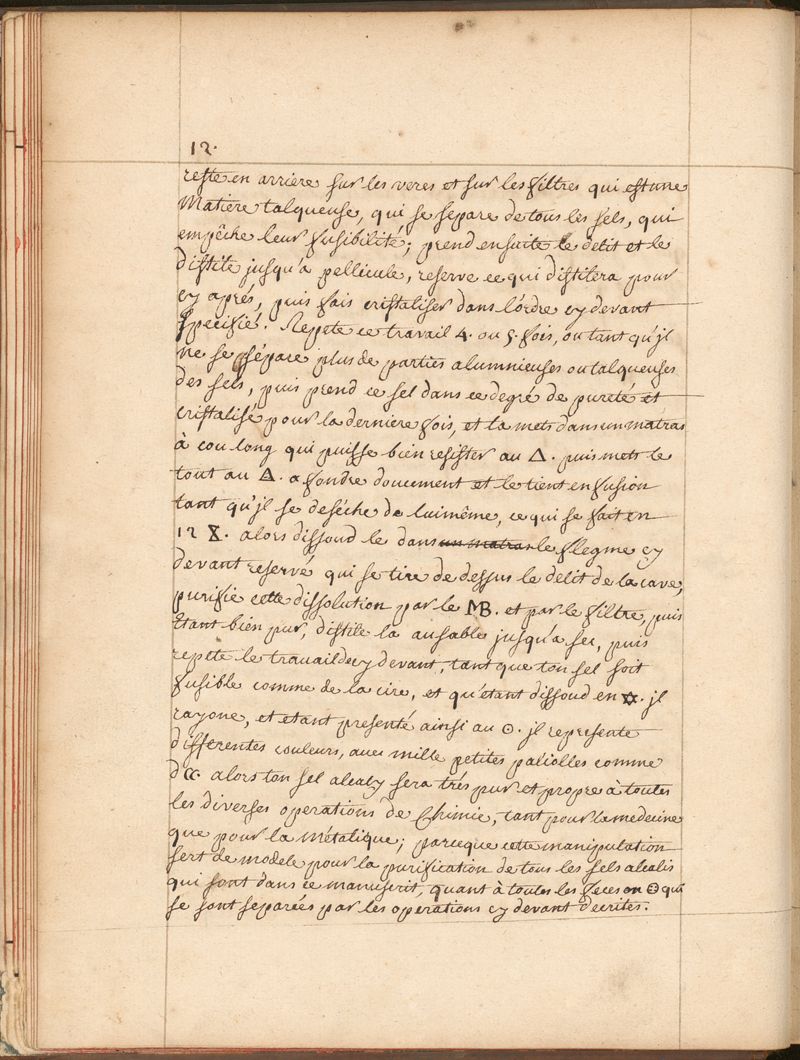 12.
reste en arriere sur les veres et sur les filtres qui est une
Matiere talqueuse, qui se separe de tous les sels, qui
empêche leur fusibilité; prend ensuite le delit et le
distile jusqu'a pellicule, reserve ce qui distilera pour
cy aprés, puis fais cristaliser dans l'ordre cy devant
specifié. Repete ce travail 4. ou 5. fois, ou tant qu'jl
ne se sépare plus de parties alumnieuses ou talqueuses
des sels, puis prend ce sel dans ce degré de pureté et
cristalisé pour la derniere fois, et la mets dans un matras
à cou long qui puisse bien resister au 🜂. puis mets le
tout au 🜁. a fondre doucement et le tient en fusion
tant qu'jl se deséche de luimême, ce qui se fait en
12 X. alors dissoud le dans un matras le flegme cy
devant reservé qui se tire de dessus le delit de la cave,
purifie cette dissolution par le MB. et par le filtre, puis
Etant bien pur, distile la au sable jusqu'a sec, puis
repete le travail de cy devant, tant que ton sel soit
fusible comme de la cire, et qu'étant dissoud en ✡. jl
rayone, et etant presenté ainsi au ☉. jl represente
differentes couleurs, avec mille petites paliolles comme
d'☾. alors ton sel alcaly sera trés pur et propre à toutes
les diverses operations de Chimie, tant pour la medecine
que pour la Métalique; parceque cette manipulation
sert de modele pour la purification de tous les sels alcalis
qui sont dans ce manuscrit, quant à toutes les feces en 🜔 qui
se sont separées par les operations cy devant decrites.